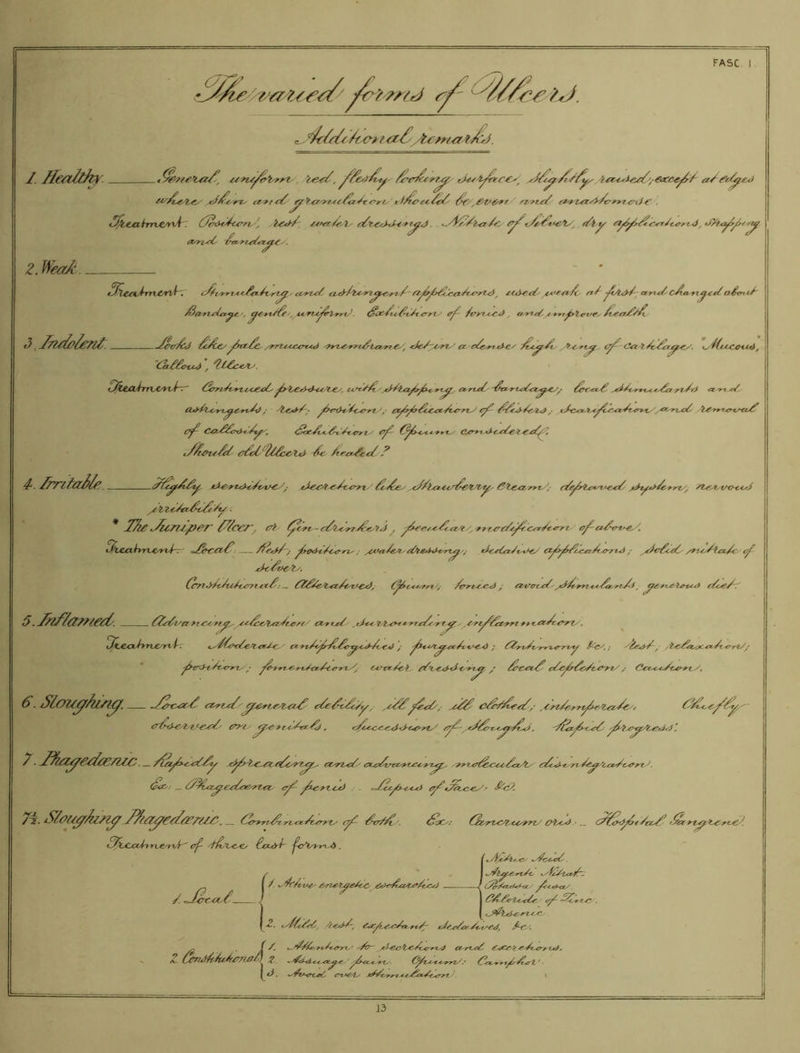 FASC. I.
The varied forms of Ulcers.
Additional remarks.
1. Healthy. General, uniform, red, fleshy looking surface, slightly raised, except at edges
where skin and granulation should be even and anastomose.
Treatment. Position, rest, water dressings. Nitrate of Silver, dry applications, strapping
and bandage.
2. Weak
Treatment. Stimulating and astringent applications, used weak at first and changed about
Bandage, gentle, uniform. Exhibition of tonics, and improve health
3. Indolent. Looks like pale mucous membrane, set in a dense high ring of Cartilage. "Mucous,"
"Callous", Ulcer.
Treatment. Continued pressure, with strapping and bandage; local stimulants and
astringents; rest; position; application of blisters; scarification and removal
of callosity. Exhibition of Opium considered.
Should old Ulcers be healed?
4. Irritable. Highly sensitive; secretion like Strawberry Cream; depraved system; nervous
irritability.
* The Juniper Ulcer, or Gin-drinkers, peculiar modification of above.
Treatment. Local. Rest; position; water dressing; sedative applications; solid nitrate of
silver.
Constitutional. Alteratives, Opium; tonics; avoid stimulants, generous diet.
5. Inflamed. Advancing ulceration and surrounding inflammation.
Treatment. Moderate antiphlogistics; purgatives; Antimony &c.; rest; relaxation;
position; fomentation; water dressing; local depletion; Caution.
6. Sloughing. Local and general debility, ill fed; ill clothed; intemperate. Chiefly
observed on genitals. Succession of sloughs. Rapid progress.
7. Phagedænic. Rapidly spreading and advancing molecular disintegration.
Ex: Phagedæna of penis. Lupus of Face. &c.
7½. Sloughing Phagedænic. Combination of both. Ex: Cancrum oris. Hospital Gangrene.
Treatment of three last forms.
1. Local
1. Active energetic escharotics
Nitric Acid.
Argenti Nitrat:
Potassa fusa
Chloride of Zinc.
Arsenic
2. Mild, rest, expectant sedatives, &c.
2 Constitutional
1. Attention to secretions and excretions.
2. Assuage pain. Opium: Camphor.
3. Avoid over stimulation.
13